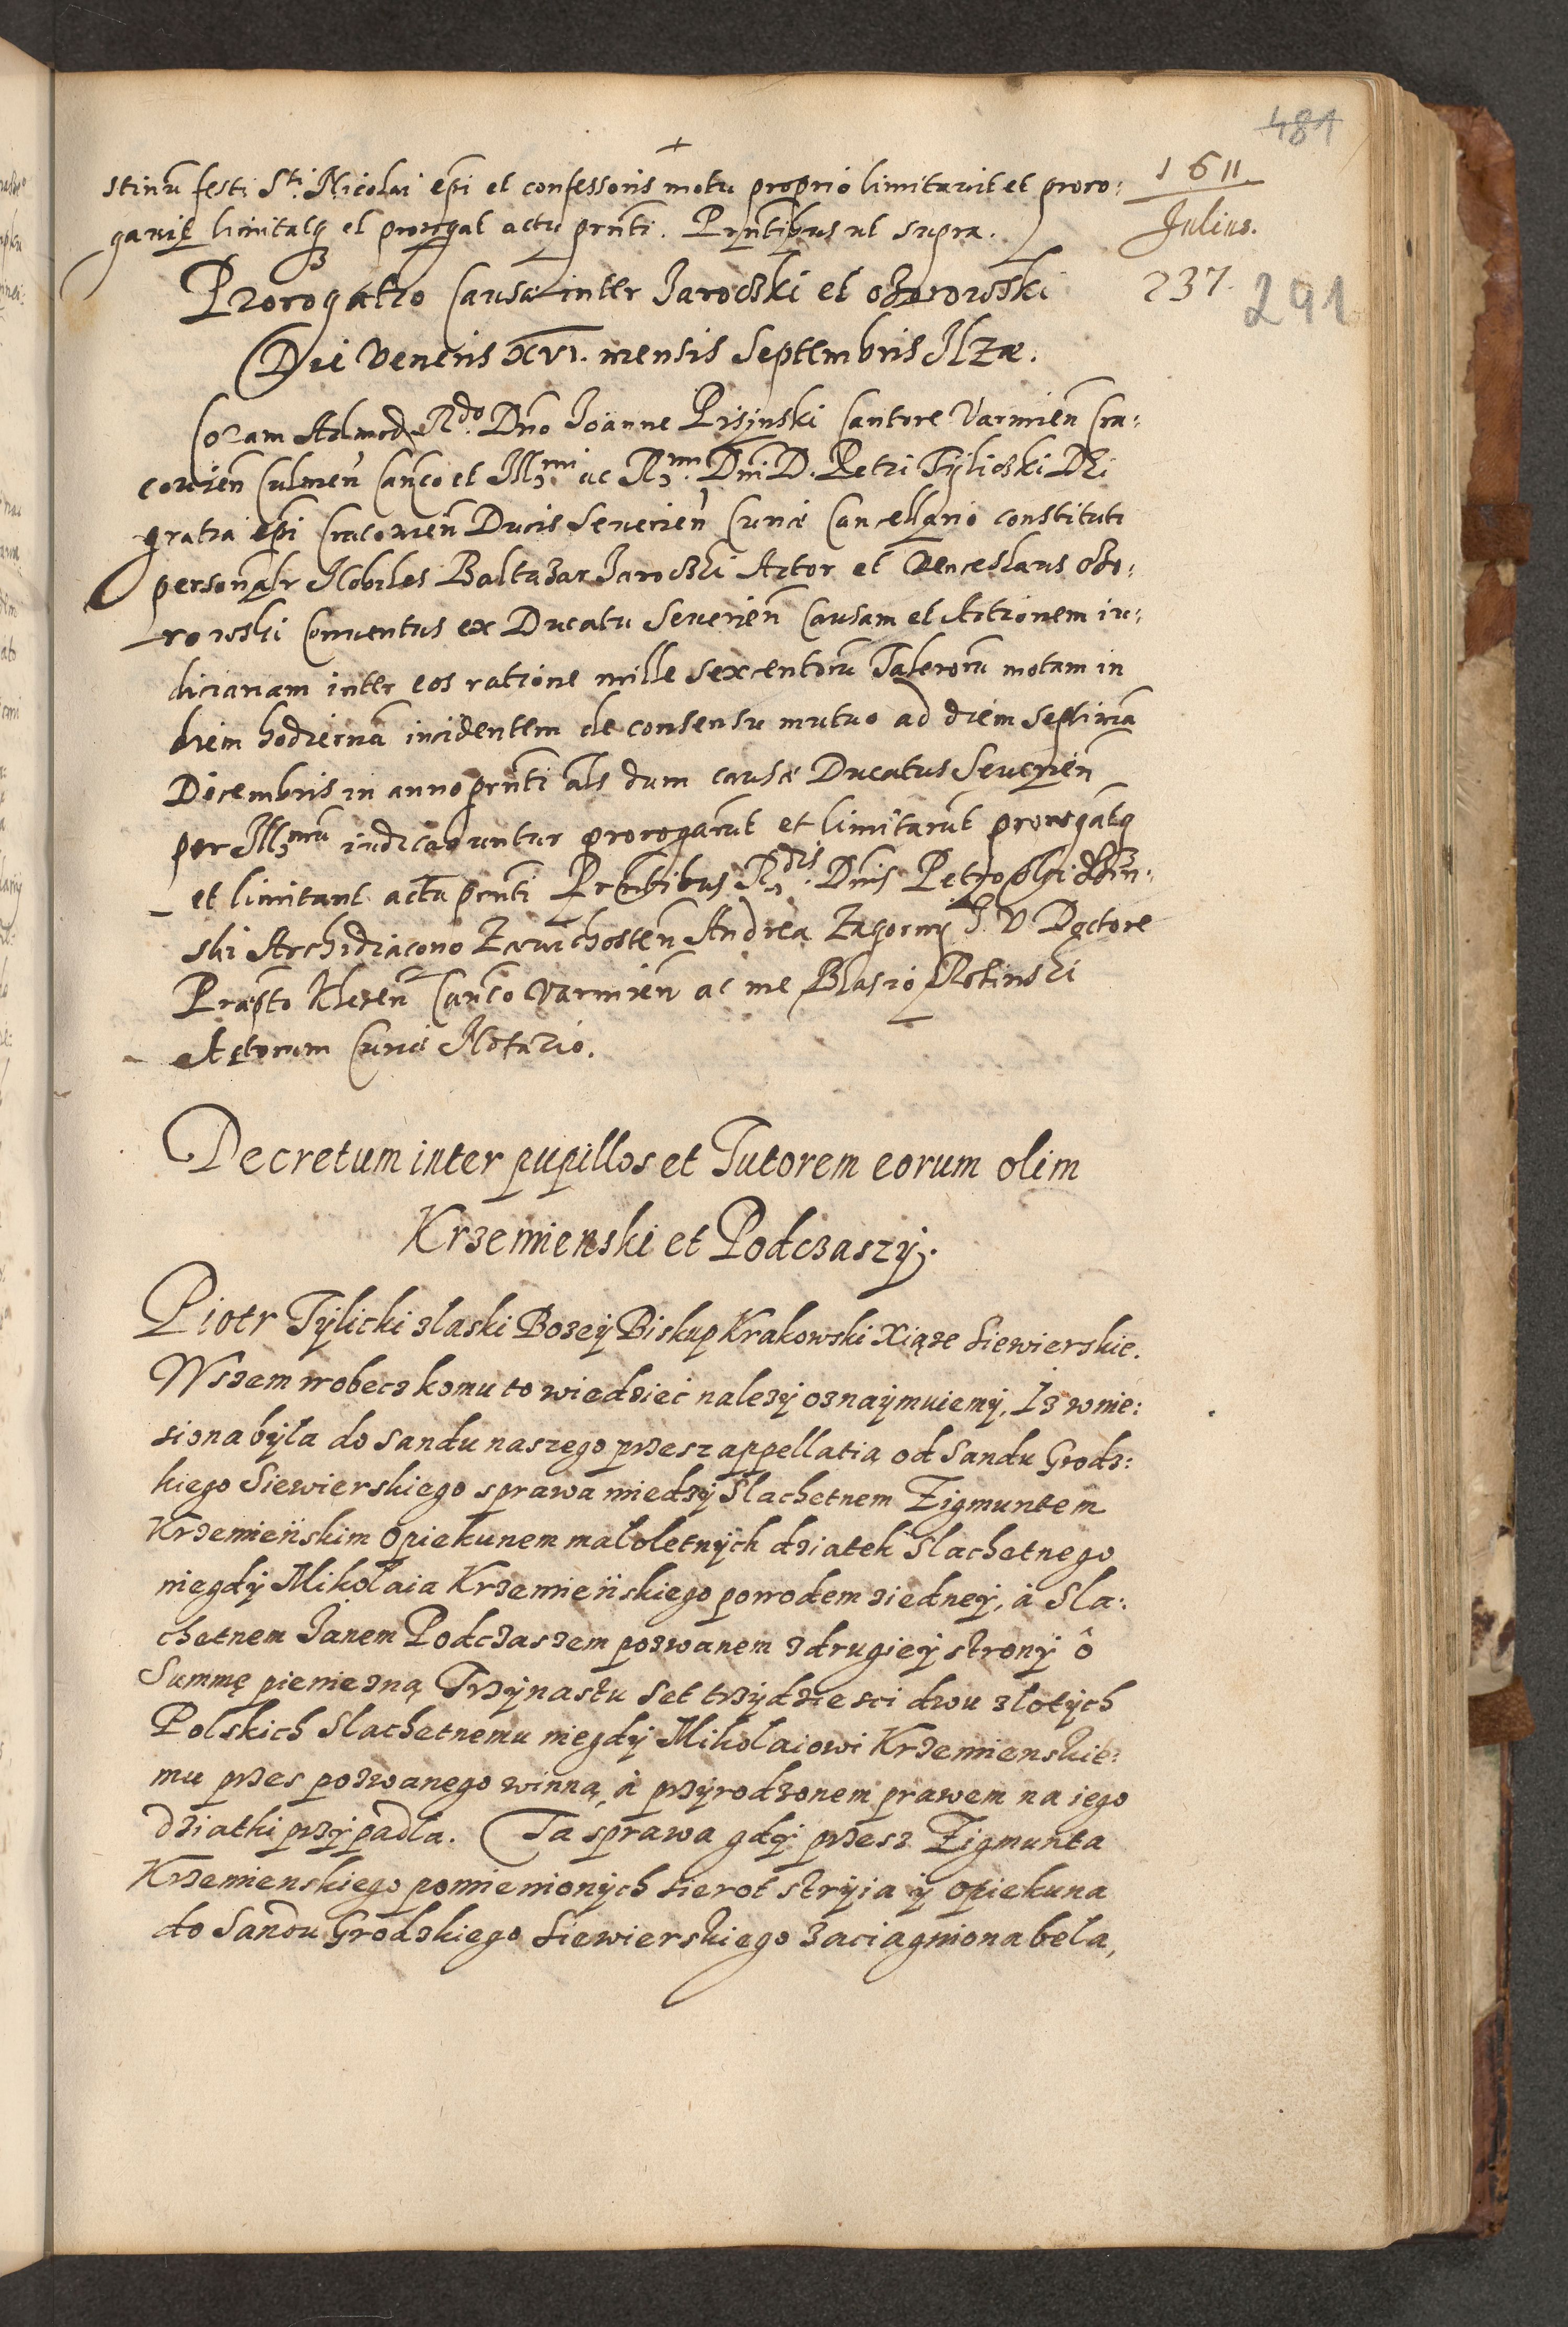 481
+
1611
Julius.
237.
291
stinũ festi Sti Nicolai epi et confessoris motu proprio limitavit et proro:
gavit limitatq et prorogat actu prnti. Prntibus ut supra.
Prorogatio Causæ inter Jarocki et ożarowski
Die Veneris XVI. mensis Septembris Ilzæ.
Coram Admod Rdo. Dno Joanne Pisinski Cantore Varmien Cra:
covien Culmen Canco et Illmi ac Rmi Dni D. Petri Tÿlicki Dei
gratia epi Cracovien Ducis Severien Curiæ Cancellario constituti
personalr Nobiles Baltazar Jarocki Actor et Venceslaus ożo:
rowski Conventus ex Ducatu Severien Causam et Actionem iu:
diciariam inter eos ratione mille sexcentorũ Talerorũ motam in
diem hodiernã incidentem de consensu mutuo ad diem septimã
Decembris in anno prnti als dum causæ Ducatus Severien
per Illmũ iudicabuntur prorogarũt et limitarũt prorogãtq
et limitant actu prnti Prntibus Rdis. Dnis Petro
ski Archidiacono Zawichosten Andrea Zagorny J. V Doctore
Præpto Canco Varmien ac me Blasio
Actorum Curiæ Notario.
Decretum inter pupillos et Tutorem eorum olim
Krzemienski et Podczaszÿ.
Piotr Tÿlicki zlaski Bozeÿ Biskup Krakowski Xiąze Siewierskie.
Wszem wobecz komu to wiedzieć nalezÿ oznaÿmuiemÿ, Iz wnie:
siona bÿla do Sandu naszego przesz appellatią od Sandu Grodz:
kiego Siewierskiego sprawa miedzÿ Slachetnem Zigmuntem
Krzemieńskim Opiekunem maloletnÿch dziatek Slachetnego
niegdÿ Mikolaia Krzemieńskiego powodem ziedneÿ, à Sla:
chetnem Janem Podczaszem pozwanem zdrugieÿ stronÿ ô
Summę pieniezną Trzÿnastu set trzÿdziesci dwu zlotÿch
Polskich Slachetnemu niegdÿ Mikolaiowi Krzemienskie:
mu przes pozwanego winną, à przÿrodzonem prawem na iego
dziatki przÿpadla. Ta sprawa gdÿ przesz Zigmunta
Krzemienskiego pomienionÿch sierot strÿia ÿ opiekuna
do Sandu Grodzkiego Siewierskiego zaciagniona bela,